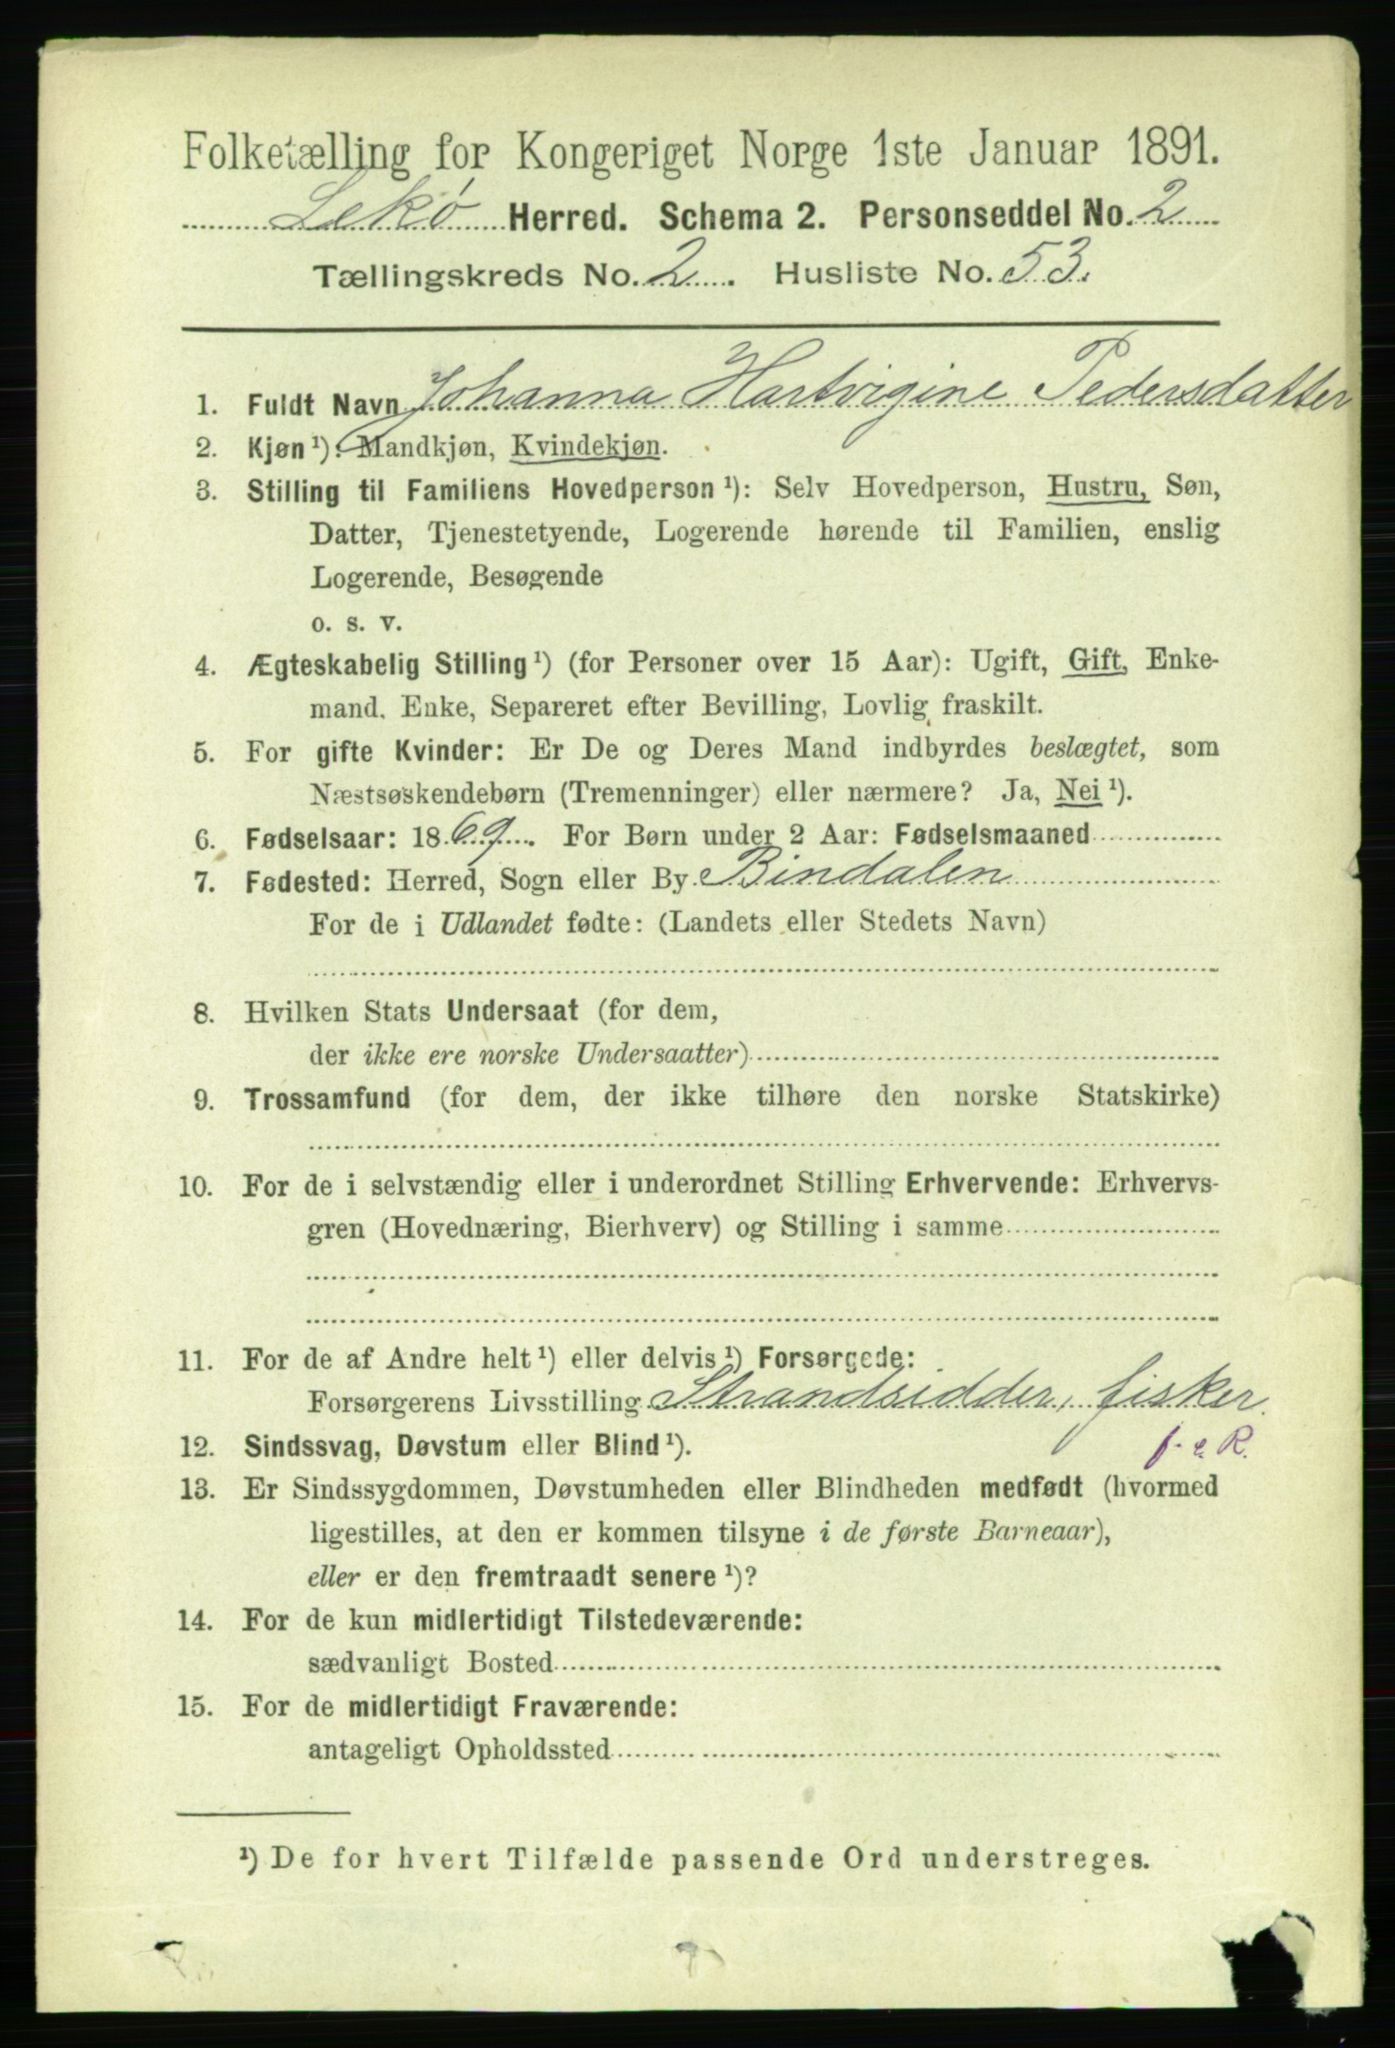 Folketælling for Kongeriget Norge 1ste Januar 1891.
Lekø Herred. Schema 2. Personseddel No. 2
Tællingskreds No. 2. Husliste No. 53.
1. Fuldt Navn Johanna Hartvigine Pedersdatter
2. Kjøn ¹): Mandkjøn, Kvindekjøn.
3. Stilling til Familiens Hovedperson ¹): Selv Hovedperson, Hustru, Søn,
Datter, Tjenestetyende, Logerende hørende til Familien, enslig
Logerende, Besøgende
o. s. v.
4. Ægteskabelig Stilling ¹) (for Personer over 15 Aar): Ugift, Gift, Enke-
mand, Enke, Separeret efter Bevilling, Lovlig fraskilt.
5. For gifte Kvinder: Er De og Deres Mand indbyrdes beslægtet, som
Næstsøskendebørn (Tremenninger) eller nærmere? Ja, Nei ¹).
6. Fødselsaar: 1869. For Børn under 2 Aar: Fødselsmaaned
7. Fødested: Herred, Sogn eller By Bindalen
For de i Udlandet fødte: (Landets eller Stedets Navn)
8. Hvilken Stats Undersaat (for dem,
der ikke ere norske Undersaatter)
9. Trossamfund (for dem, der ikke tilhøre den norske Statskirke)
10. For de i selvstændig eller i underordnet Stilling Erhvervende: Erhvervs-
gren (Hovednæring, Bierhverv) og Stilling i samme
11. For de af Andre helt ¹) eller delvis ¹) Forsørgede:
Forsørgerens Livsstilling Strandsidder, fisker.
12. Sindssvag, Døvstum eller Blind ¹).
13. Er Sindssygdommen, Døvstumheden eller Blindheden medfødt (hvormed
ligestilles, at den er kommen tilsyne i de første Barneaar),
eller er den fremtraadt senere ¹)?
14. For de kun midlertidigt Tilstedeværende:
sædvanligt Bosted
15. For de midlertidigt Fraværende:
antageligt Opholdssted
¹) De for hvert Tilfælde passende Ord understreges.